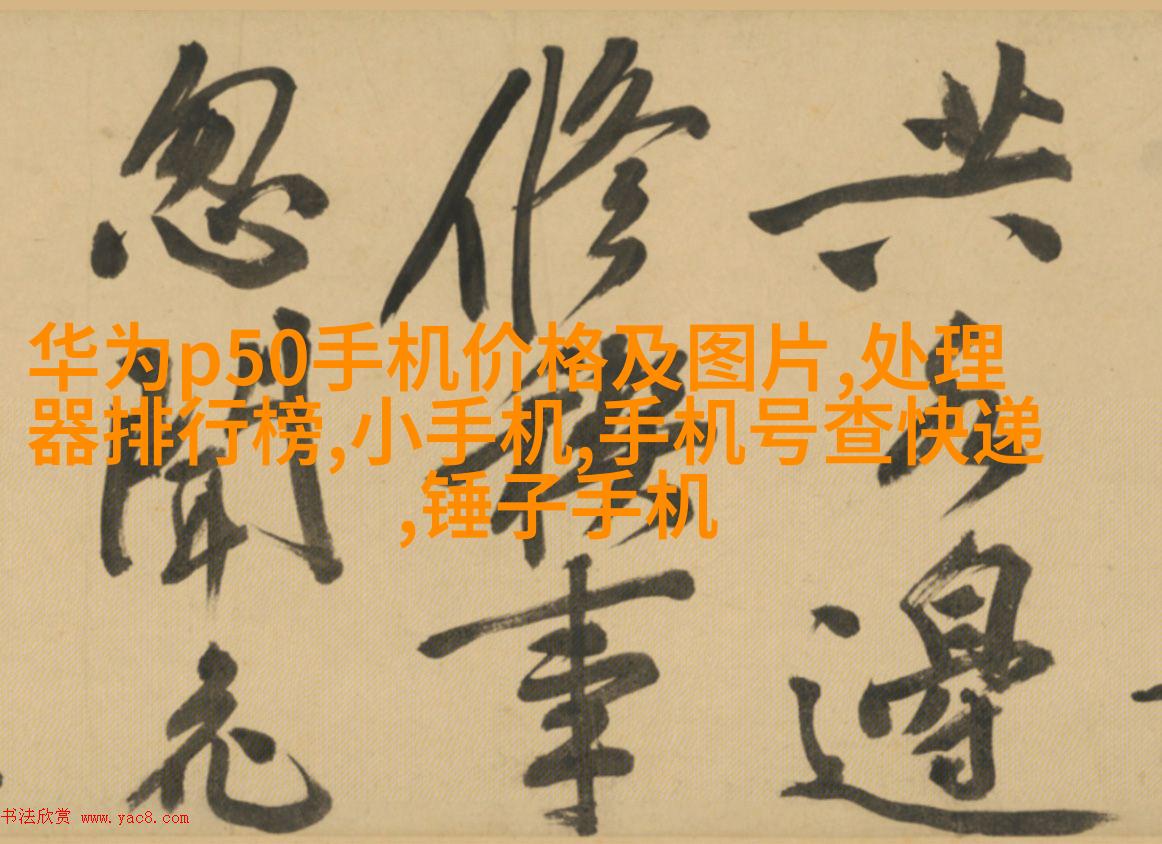 共 邊
修禊事
忽聞
华为p50手机价格及图片,处理
器排行榜,小手机,手机号查快递
,锤子手机
书法欣赏 www.yac8.com